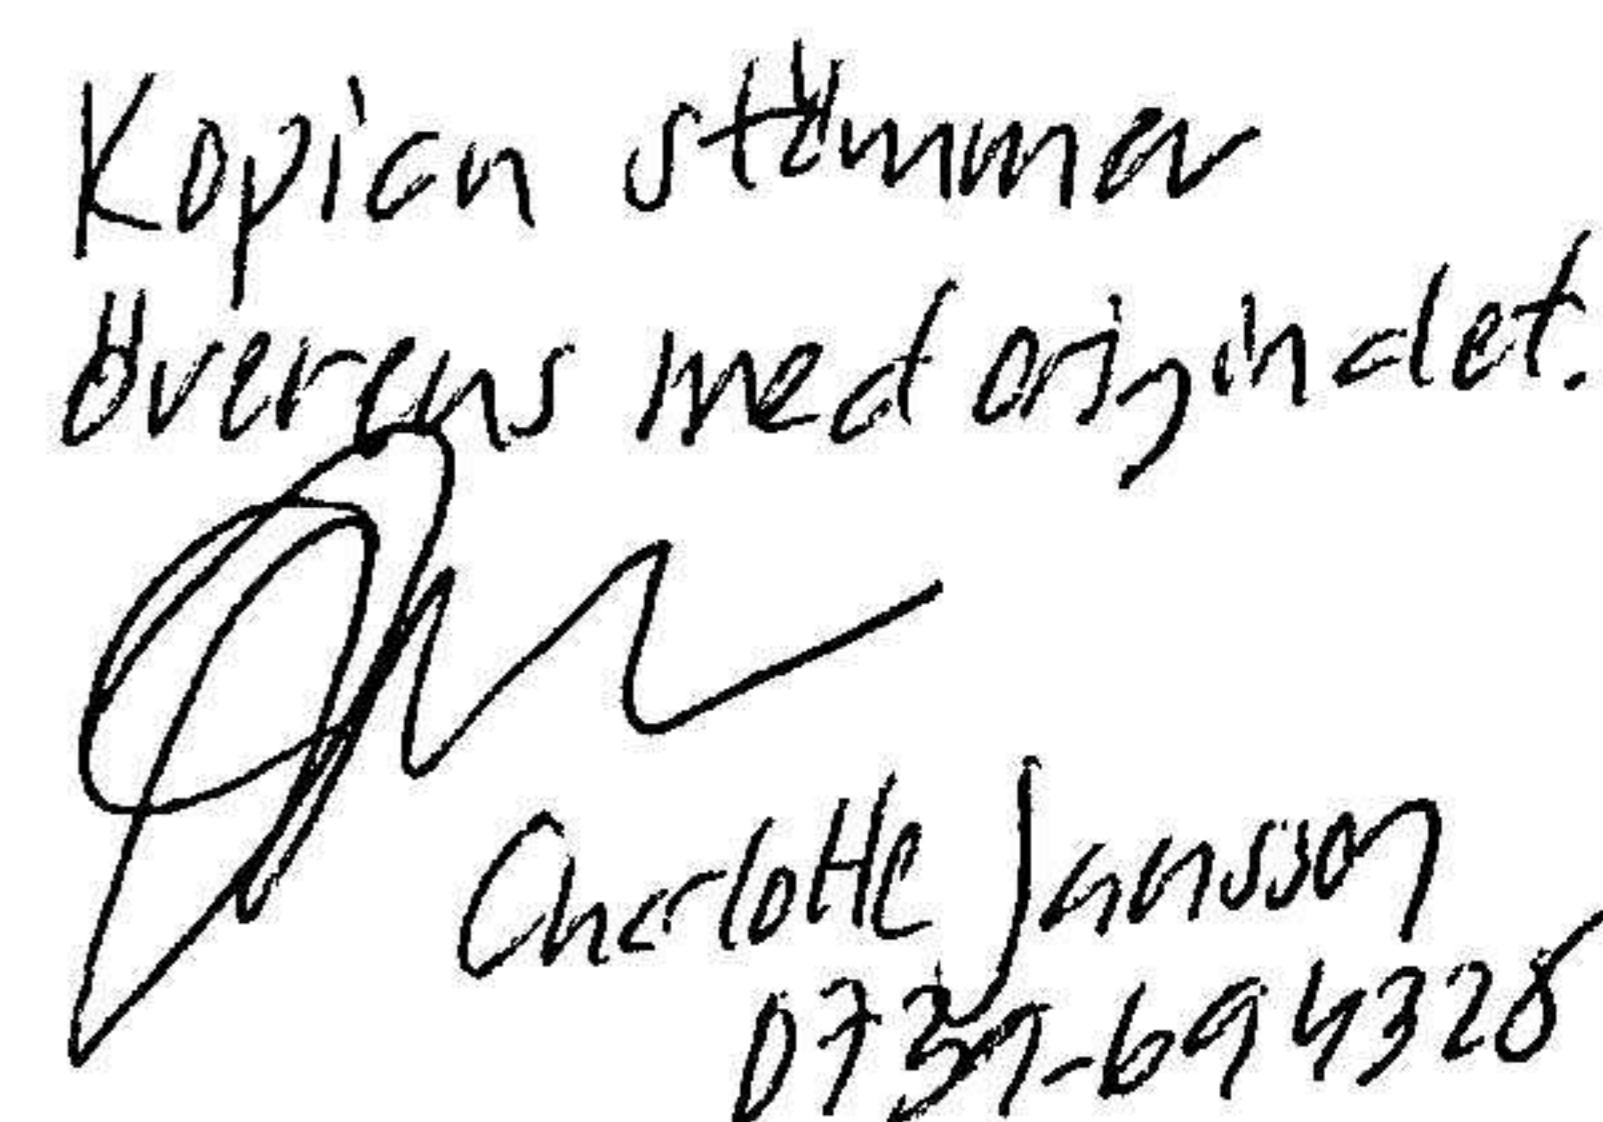 Kopian stämmer
överens med originalet.
Charlotte Jansson
0739-694328